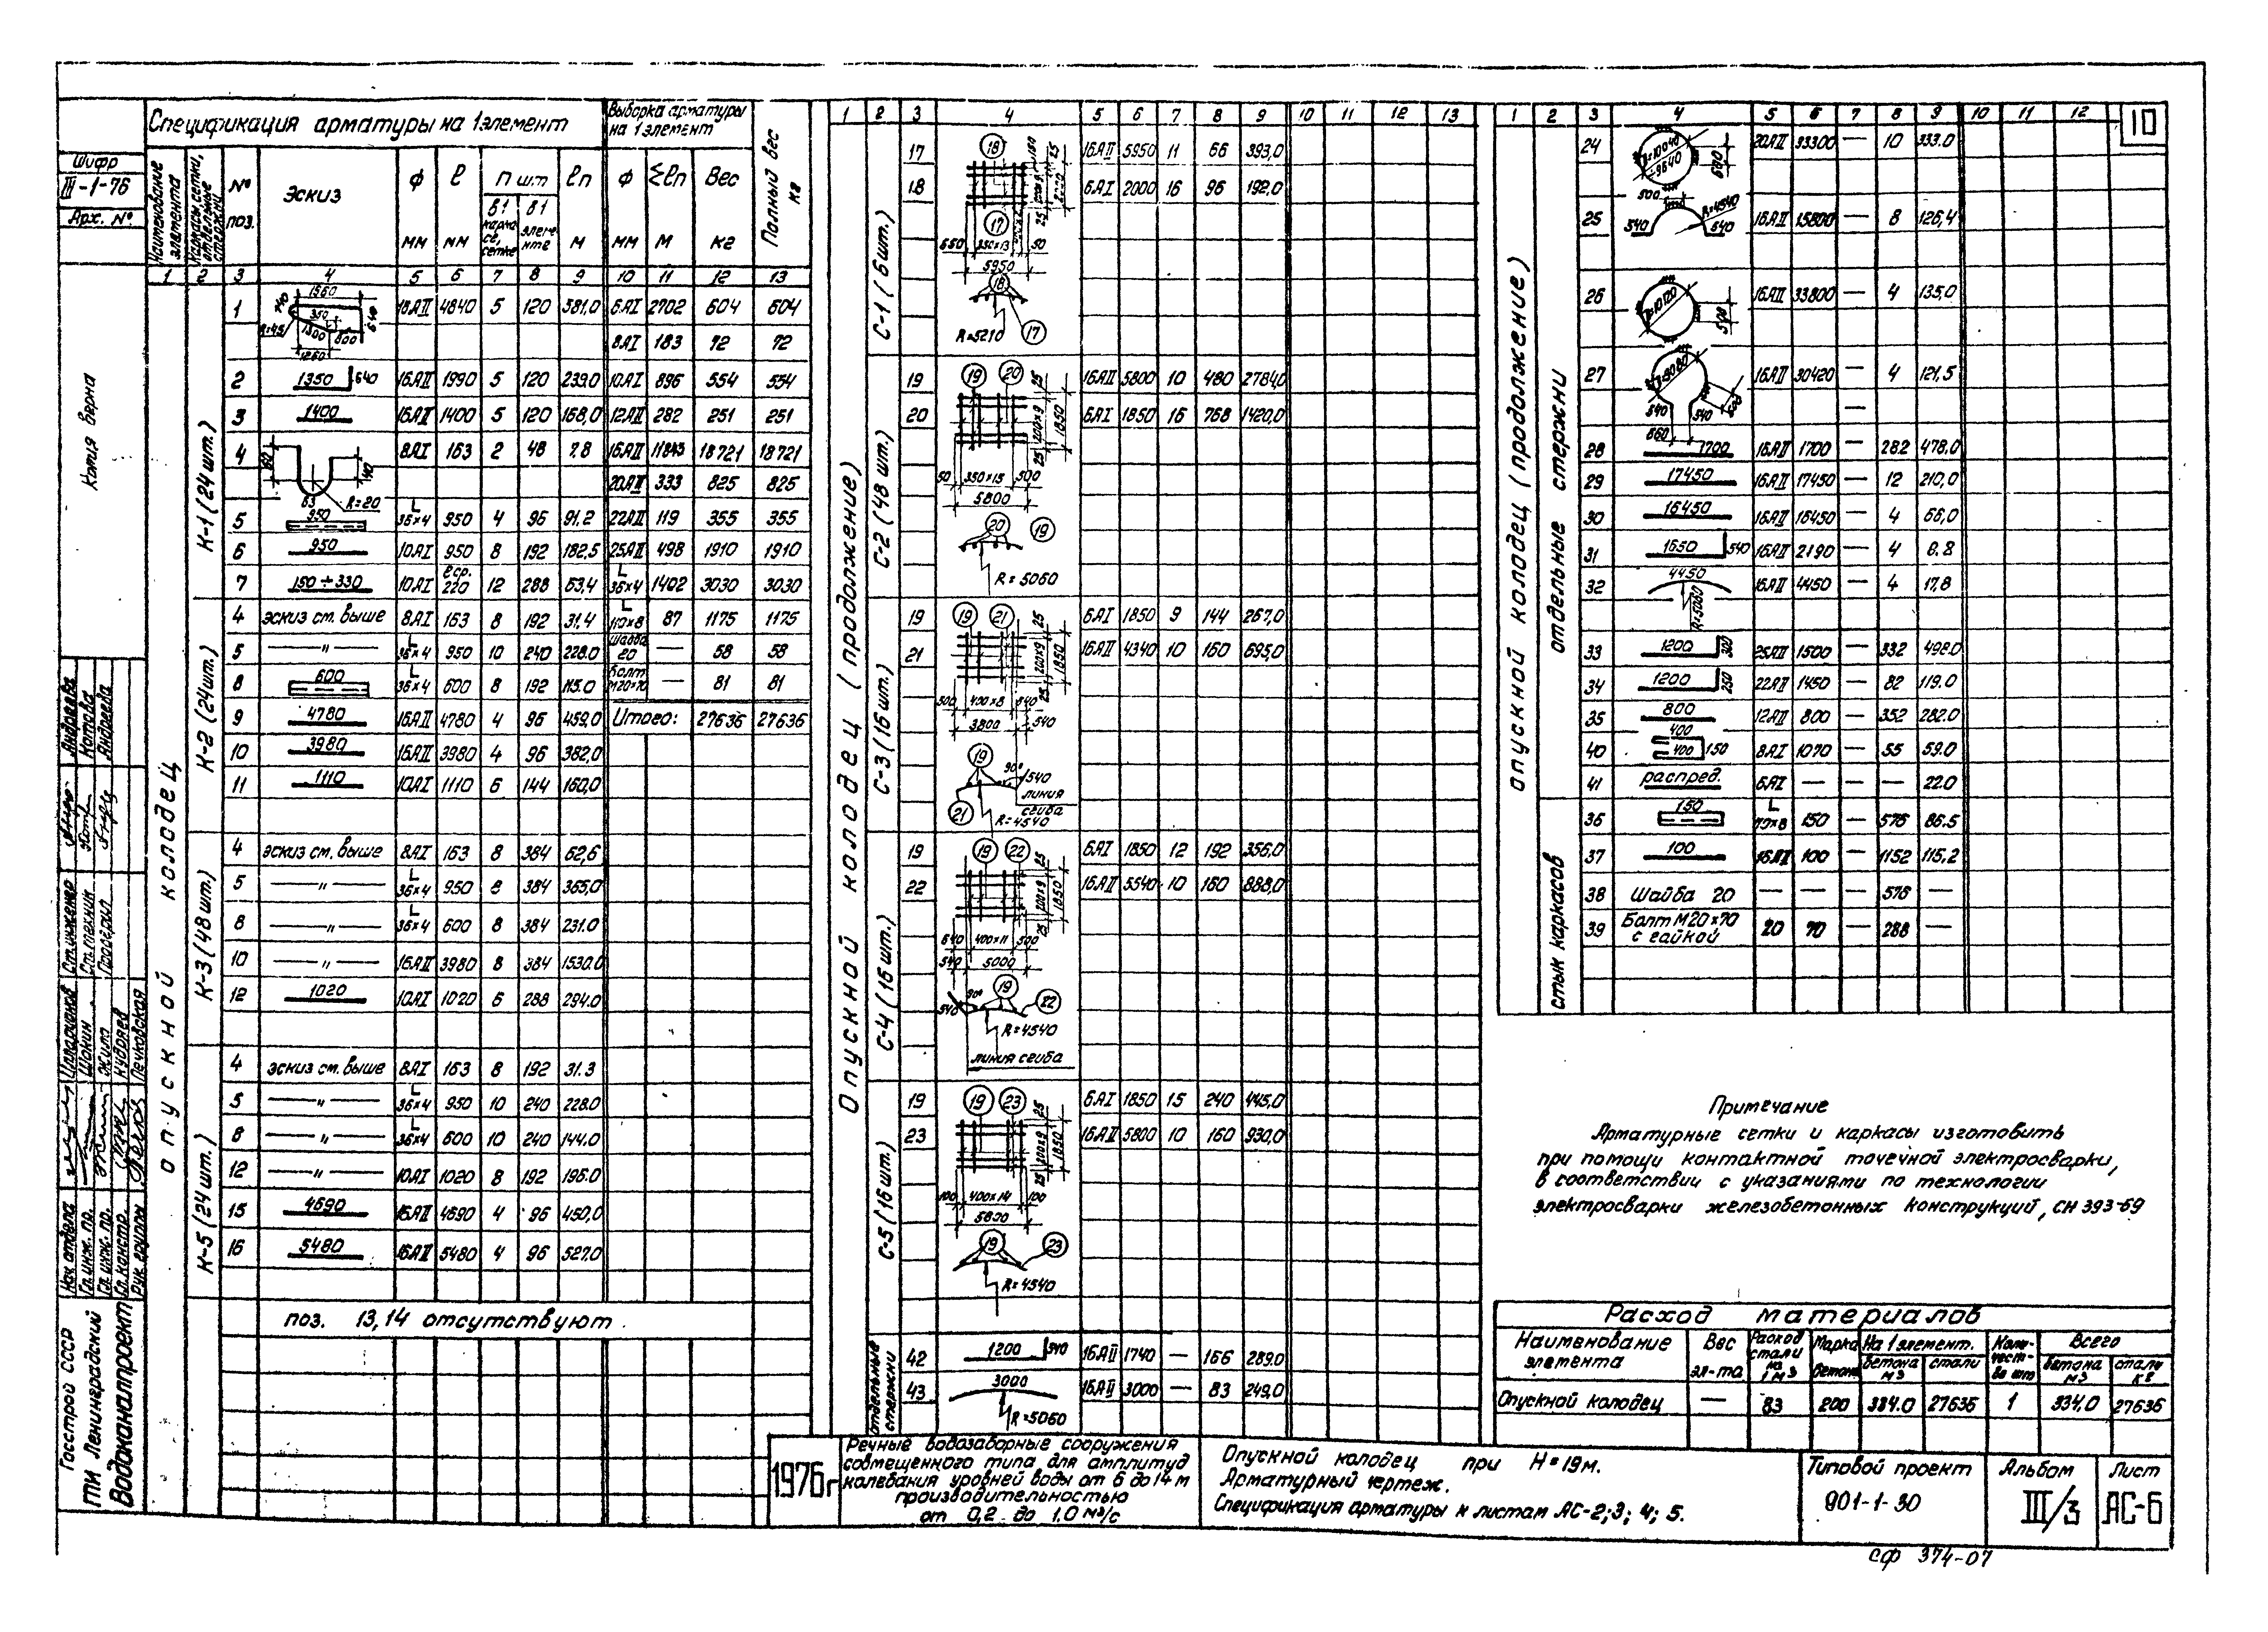 10
Шифр
III-1-76
Арх. №
Копия верна
Спецификация арматуры на 1 элемент
Выборка арматуры на 1 элемент
Полный вес кг
Наименование элемента
Каркасы сетки, отдельные стержни
№ поз.
Эскиз
ф мм
ℓ мм
n шт
в 1 каркасе, сетке
в 1 элементе
ℓn м
ф мм
Σℓn м
Вес кг
1 2 3 4 5 6 7 8 9 10 11 12 13
Опускной колодец
К-1 (24 шт.)
1 16АII 4840 5 120 581,0 6АI 2702 604 604
8АI 183 72 72
2 1350 640 16АII 1990 5 120 239.0 10АI 896 554 554
3 1400 16АII 1400 5 120 168,0 12АII 282 251 251
4 R=20 8АI 163 2 48 7.8 16АII 11843 18721 18721
20АII 333 825 825
5 950 L 36×4 950 4 96 91.2 22АII 119 355 355
6 950 10АI 950 8 192 182.5 25АII 498 1910 1910
7 150÷330 10АI ℓср. 220 12 288 63,4 L 36×4 1402 3030 3030
К-2 (24шт.)
4 эскиз см. выше 8АI 163 8 192 31,4 L 110×8 87 1175 1175
5 —〃— L 36×4 950 10 240 228.0 Шайба 20 — 58 58
8 600 L 36×4 600 8 192 115.0 Болт М20×70 — 81 81
9 4780 16АII 4780 4 96 459,0 Итого: 27636 27636
10 3980 16АII 3980 4 96 382,0
11 1110 10АI 1110 6 144 160,0
К-3 (48 шт.)
4 эскиз см. выше 8АI 163 8 384 62,6
5 —〃— L 36×4 950 8 384 365,0
8 —〃— L 36×4 600 8 384 231.0
10 —〃— 16АII 3980 8 384 1530.0
12 1020 10АI 1020 6 288 294.0
К-5 (24 шт.)
4 эскиз см. выше 8АI 163 8 192 31.3
5 —〃— L 36×4 950 10 240 228.0
8 —〃— L 36×4 600 10 240 144.0
12 —〃— 10АI 1020 8 192 196.0
15 4690 16АII 4690 4 96 450,0
16 5480 16АII 5480 4 96 527.0
поз. 13,14 отсутствуют.
1 2 3 4 5 6 7 8 9 10 11 12 13
Опускной колодец (продолжение)
С-1 (6 шт.)
17 16АII 5950 11 66 393,0
18 6АI 2000 16 96 192,0
650 350×13 50
5950
R=5210
С-2 (48 шт.)
19 16АII 5800 10 480 2784,0
20 6АI 1850 16 768 1420,0
50 350×15 500
5800
R=5060
С-3 (16 шт.)
19 6АI 1850 9 144 267,0
21 16АII 4340 10 160 695,0
500 400×8 540
3800 540
90° 540
линия сгиба
R=4540
С-4 (16 шт.)
19 6АI 1850 12 192 356,0
22 16АII 5540 10 160 888,0
640 400×11 500
540 5000
R=4540
линия сгиба
С-5 (16 шт.)
19 6АI 1850 15 240 445,0
23 16АII 5800 10 160 930,0
100 400×14 100
5800
R=4540
отдельные стержни
42 1200 540 16АII 1740 — 166 289.0
43 3000 R=5060 16АII 3000 — 83 249,0
1 2 3 4 5 6 7 8 9 10 11 12
Опускной колодец (продолжение)
отдельные стержни
24 20АII 33300 — 10 333.0
25 500 R=4540 540 540 16АII 15800 — 8 126,4
26 16АII 33800 — 4 135,0
27 540 540 660 16АII 30420 — 4 121,5
28 1700 16АII 1700 — 282 478,0
29 17450 16АII 17450 — 12 210,0
30 16450 16АII 16450 — 4 66,0
31 1650 540 16АII 2190 — 4 8.8
32 4450 R=5060 16АII 4450 — 4 17,8
33 1200 300 25АII 1500 — 332 498.0
34 1200 250 22АII 1450 — 82 119.0
35 800 12АII 800 — 352 282.0
40 400 400 150 8АI 1070 — 55 59.0
41 распред. 6АI — — — 22.0
стык каркасов
36 150 L 110×8 150 — 576 86.5
37 100 16АI 100 — 1152 115,2
38 Шайба 20 — — — 576 —
39 Болт М20×70 с гайкой 20 70 — 288 —
Примечание
Арматурные сетки и каркасы изготовить
при помощи контактной точечной электросварки,
в соответствии с указаниями по технологии
электросварки железобетонных конструкций, СН 393-69
Расход материалов
Наименование элемента
Вес эл-та
Расход стали на 1 м3
Марка бетона
На 1 элемент.
бетона м3
стали
Количество шт
Всего
бетона м3
стали кг
Опускной колодец — 83 200 334.0 27636 1 334.0 27636
Госстрой СССР
ГПИ Ленинградский
Водоканалпроект
Нач. отдела
Гл. инж. пр.
Гл. инж. пр.
Гл. констр.
Рук. группы
Илларионов
Шокин
Жила
Кудряев
Печковская
Ст. инженер
Ст. техник
Проверил
Андреева
Котова
Андреева
1976г
Речные водозаборные сооружения
совмещенного типа для амплитуд
колебания уровней воды от 6 до 14 м
производительностью
от 0,2 до 1.0 м³/с
Опускной колодец при Н=19м.
Арматурный чертеж.
Спецификация арматуры к листам АС-2; 3; 4; 5.
Типовой проект
901-1-30
Альбом
III/3
Лист
АС-6
СФ 374-07